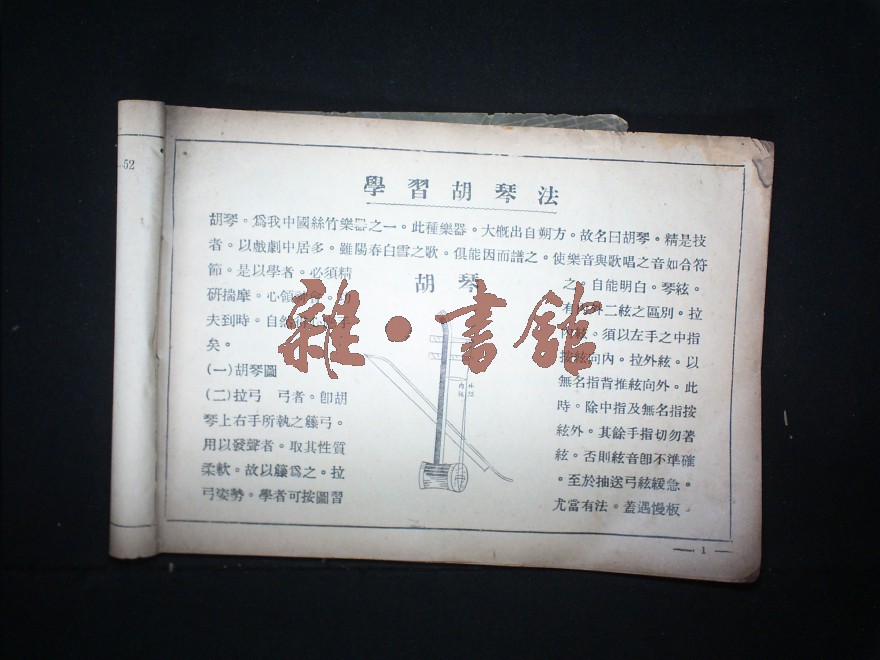 52
學習胡琴法
胡琴。爲我中國絲竹樂器之一。此種樂器。大概出自朔方。故名曰胡琴。精是技
者。以戲劇中居多。雖陽春白雪之歌。俱能因而譜之。使樂音與歌唱之音如合符
節。是以學者。必須精
研揣摩。心領
夫到時。自然
矣。
(一)胡琴圖
(二)拉弓 弓者。卽胡
琴上右手所執之籐弓。
用以發聲者。取其性質
柔軟。故以籐爲之。拉
弓姿勢。學者可按圖習
胡琴
外絃
內絃
之。自能明白。琴絃。
有內外二絃之區別。拉
內絃。須以左手之中指
按絃向內。拉外絃。以
無名指背推絃向外。此
時。除中指及無名指按
絃外。其餘手指切勿著
絃。否則絃音卽不準確
。至於抽送弓絃緩急。
尤當有法。蓋遇慢板
1
雜·書館